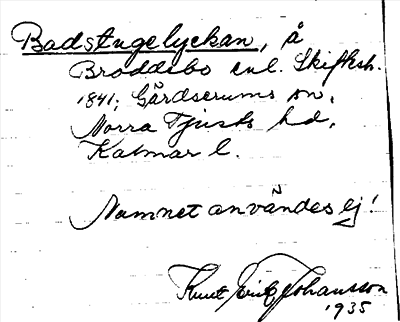 Badstugelyckan, å
Broddebo enl. Skiftesh.
1841; Gårdserums sn,
Norra Tjusts hd,
Kalmar l.
Namnet användes ej!
Knut Erik Johansson
1935